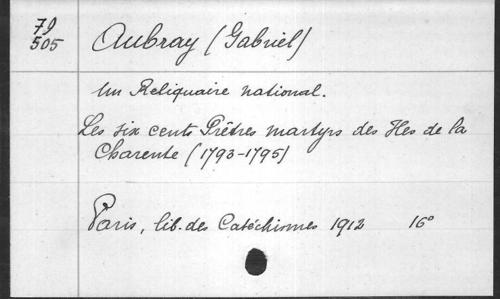 79
505
Aubray (Gabriel)
Un Reliquaire national.
Les six cents Prêtres martyrs des Iles de la
Charente (1793-1795)
Paris, lib. des Catéchismes 1912 16°